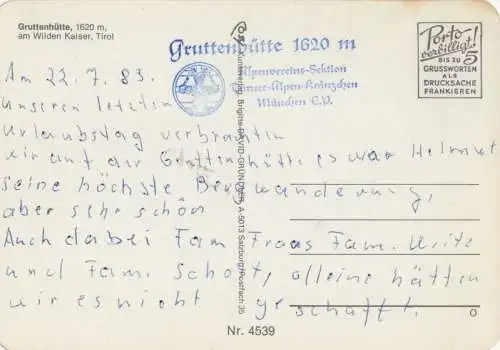 Gruttenhütte, 1620 m,
am Wilden Kaiser, Tirol
Gruttenhütte 1620 m
Alpenvereins-Sektion
Turner-Alpen-Kränzchen
München E.V.
Porto
verbilligt!
BIS ZU 5
GRUSSWORTEN
ALS
DRUCKSACHE
FRANKIEREN
Am 22.7.83.
unseren letzten
Urlaubstag verbrachten
wir auf der Gruttenhütte es war Helmut
seine höchste Bergwanderung,
aber sehr schön
Auch dabei Fam
und Fam. Schott, alleine hätten
wir es nicht geschafft.
Kunstverlag, Brigitte DAVID-GRÜNDLER, A-5013 Salzburg/Postfach 35
Nr. 4539
O